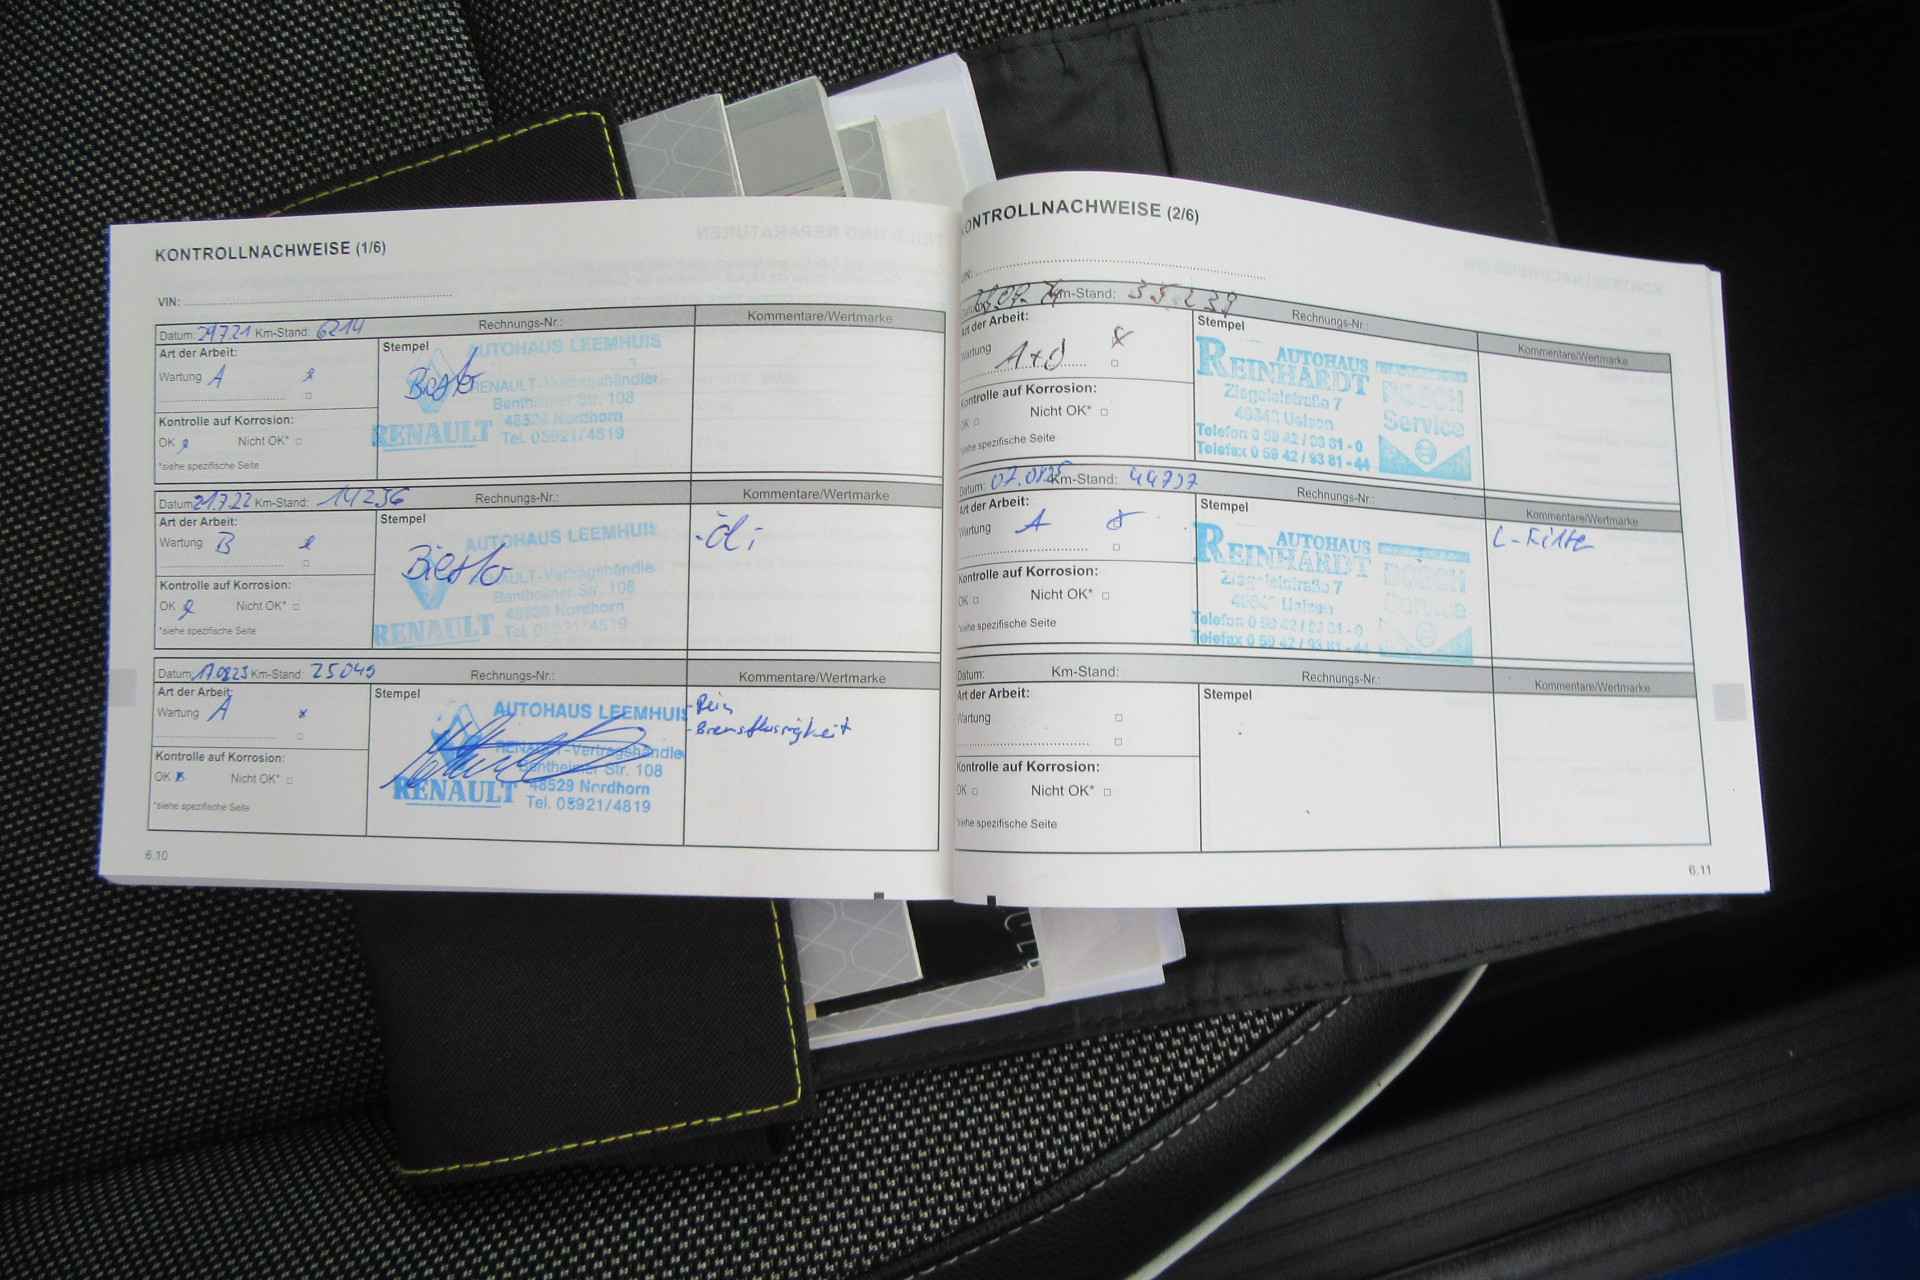 KONTROLLNACHWEISE (1/6)
VIN:
Datum: 29.7.21 Km-Stand: 6214 Rechnungs-Nr.: Kommentare/Wertmarke
Art der Arbeit:
Wartung A
Kontrolle auf Korrosion:
OK Nicht OK*
*siehe spezifische Seite
Stempel
AUTOHAUS LEEMHUIS
RENAULT-Vertragshändler
Bentheimer Str. 108
48529 Nordhorn
RENAULT Tel. 05921/4819
Datum: 21.7.22 Km-Stand: 14256 Rechnungs-Nr.: Kommentare/Wertmarke
Art der Arbeit:
Wartung B
Kontrolle auf Korrosion:
OK Nicht OK*
*siehe spezifische Seite
Stempel
AUTOHAUS LEEMHUIS
RENAULT-Vertragshändler
Bentheimer Str. 108
48529 Nordhorn
RENAULT Tel. 05921/4819
Datum: 17.08.23 Km-Stand: 25045 Rechnungs-Nr.: Kommentare/Wertmarke
Art der Arbeit:
Wartung A
Kontrolle auf Korrosion:
OK Nicht OK*
*siehe spezifische Seite
Stempel
AUTOHAUS LEEMHUIS
RENAULT-Vertragshändle
Bentheimer Str. 108
48529 Nordhorn
RENAULT Tel. 05921/4819
- Bremsflüssigkeit
6.10
KONTROLLNACHWEISE (2/6)
VIN:
Km-Stand: 35.239 Rechnungs-Nr.: Kommentare/Wertmarke
Art der Arbeit:
Wartung
Kontrolle auf Korrosion:
OK Nicht OK*
*siehe spezifische Seite
Stempel
AUTOHAUS
REINHARDT
Ziegeleistraße 7
Telefon 0 59 42 / 93 81 - 0
Telefax 0 59 42 / 93 81 - 44
BOSCH
Service
Datum: 07.0825 Km-Stand: 44797 Rechnungs-Nr.: Kommentare/Wertmarke
Art der Arbeit:
Wartung A
Kontrolle auf Korrosion:
OK Nicht OK*
*siehe spezifische Seite
Stempel
AUTOHAUS
REINHARDT
Ziegeleistraße 7
Telefon 0 59 42 / 93 81 - 0
Telefax 0 59 42 / 93 81 - 44
BOSCH
Service
L-Filter
Datum: Km-Stand: Rechnungs-Nr.: Kommentare/Wertmarke
Art der Arbeit:
Wartung
Kontrolle auf Korrosion:
OK Nicht OK*
*siehe spezifische Seite
Stempel
6.11